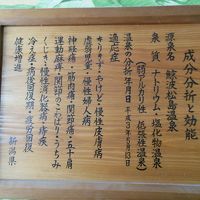 成分分析と効能
源泉名 鯨波松島温泉
泉質 ナトリウム・塩化物温泉
(弱アルカリ性 低張性温泉)
温泉の分析年月日 平成3年6月13日
適応症
きりきず・やけど・慢性皮膚病
虚弱児童・慢性婦人病
神経痛・筋肉痛・関節痛・五十肩
運動麻痺・関節のこわばり・うちみ
くじき・慢性消化器病・痔疾
冷え症・病後回復期・疲労回復
健康増進
新潟県